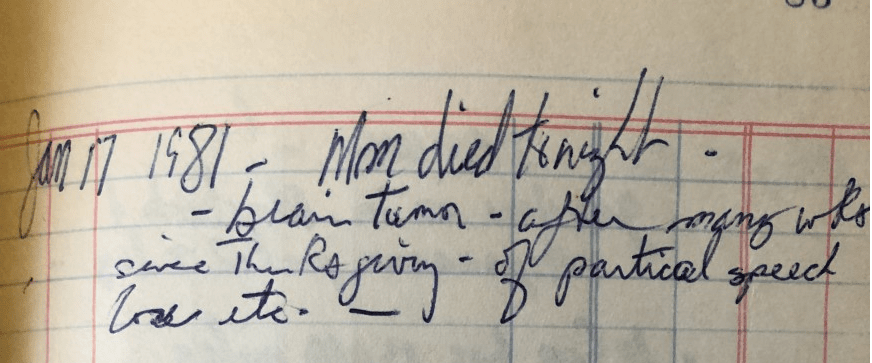 Jan 17 1981 - Mom died tonight -
- brain tumor - after many wks
since Thnksgiving - of partical speech
loss etc. —